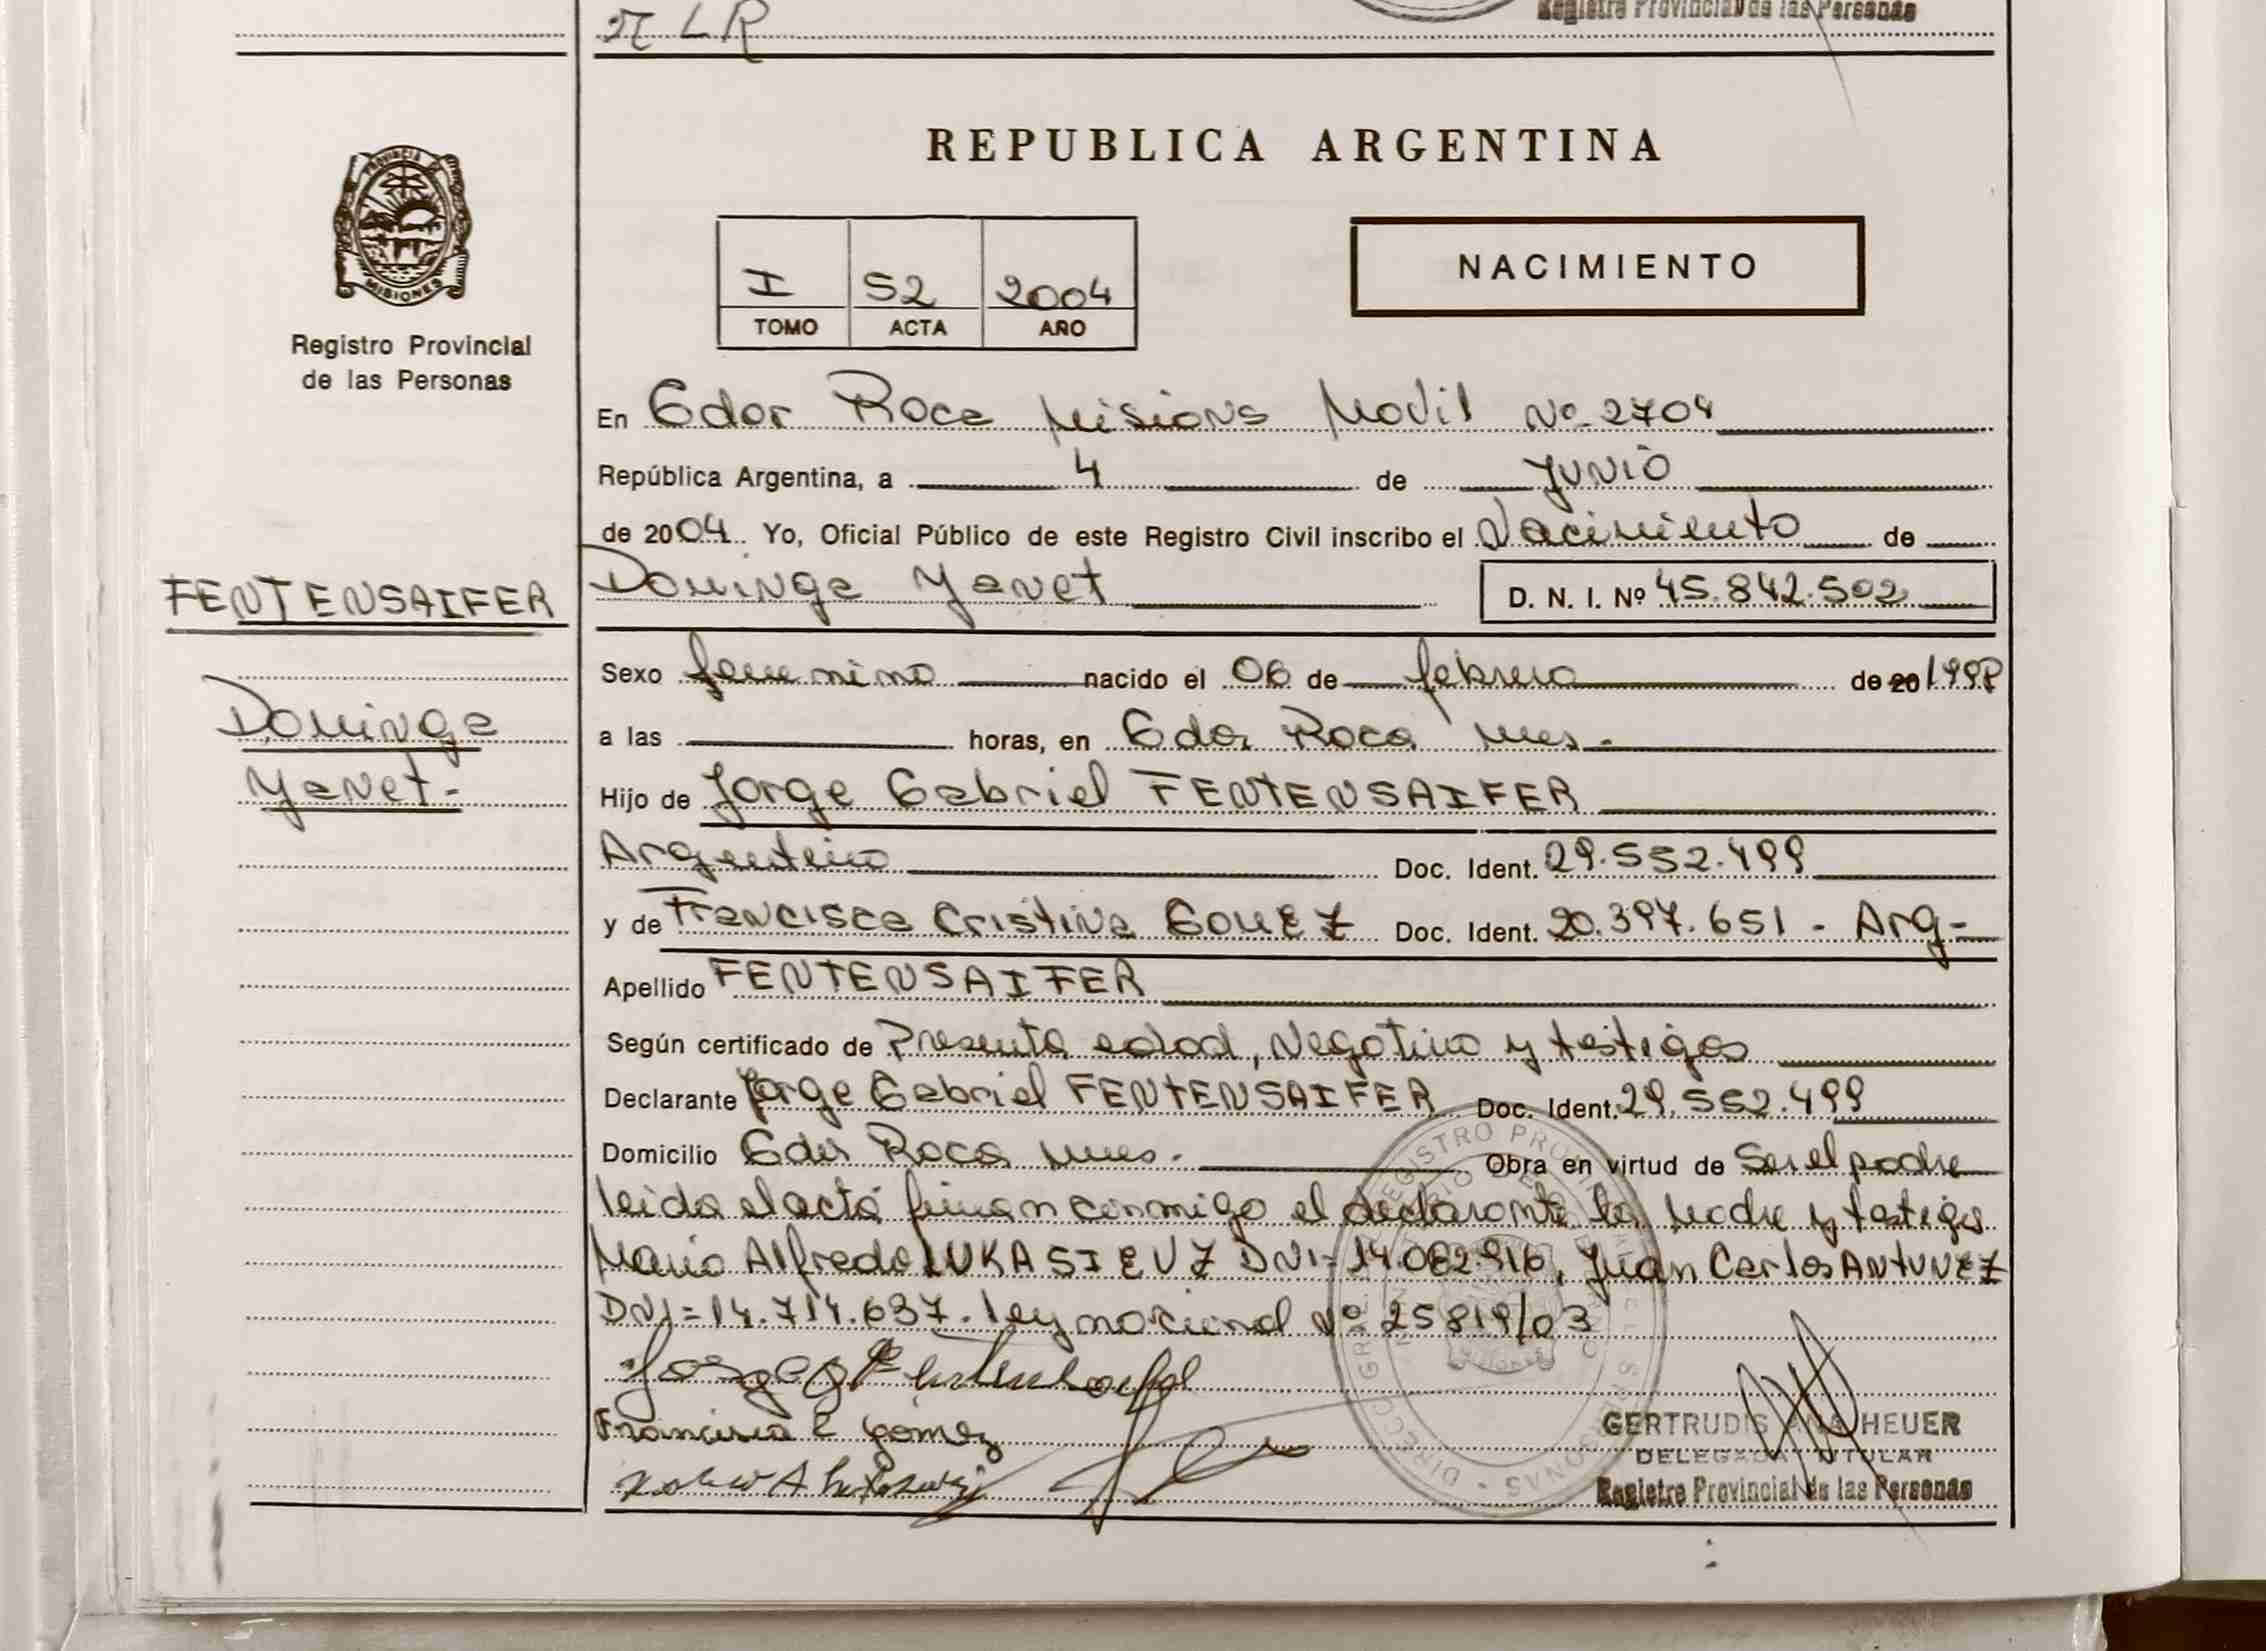 π LR
Registro Provincial de las Personas
PROVINCIA DE
MISIONES
Registro Provincial
de las Personas
REPUBLICA ARGENTINA
NACIMIENTO
I 52 2004
TOMO ACTA AÑO
En Gdor Roca Misions Movil Nº 2704
República Argentina, a 4 de Junio
de 2004. Yo, Oficial Público de este Registro Civil inscribo el Nacimiento de
FENTENSAIFER Dominga Yanet D. N. I. Nº 45.842.502
Sexo femenino nacido el 06 de febrero de 20 1998
Dominga
Yanet-
a las horas, en Gdor Roca Mnes.
Hijo de Jorge Gabriel FENTENSAIFER
Argentino Doc. Ident. 29.552.499
y de Francisca Cristina GOMEZ Doc. Ident. 20.397.651 - Arg-
Apellido FENTENSAIFER
Según certificado de Presunta edad, Negativo y testigos
Declarante Jorge Gabriel FENTENSAIFER Doc. Ident. 29.552.499
Domicilio Gdor Roca Mnes. Obra en virtud de Ser el padre
leida el acta firman conmigo el declarante la Madre y testigos
Mario Alfredo LUKASIEVZ DNI= 14.082.916, Juan Carlos ANTUNEZ
DNI=14.714.637. ley nacional Nº 25819/03
Francisca C Gómez
GERTRUDIS ANA HEUER
DELEGADA TITULAR
Registro Provincial de las Personas